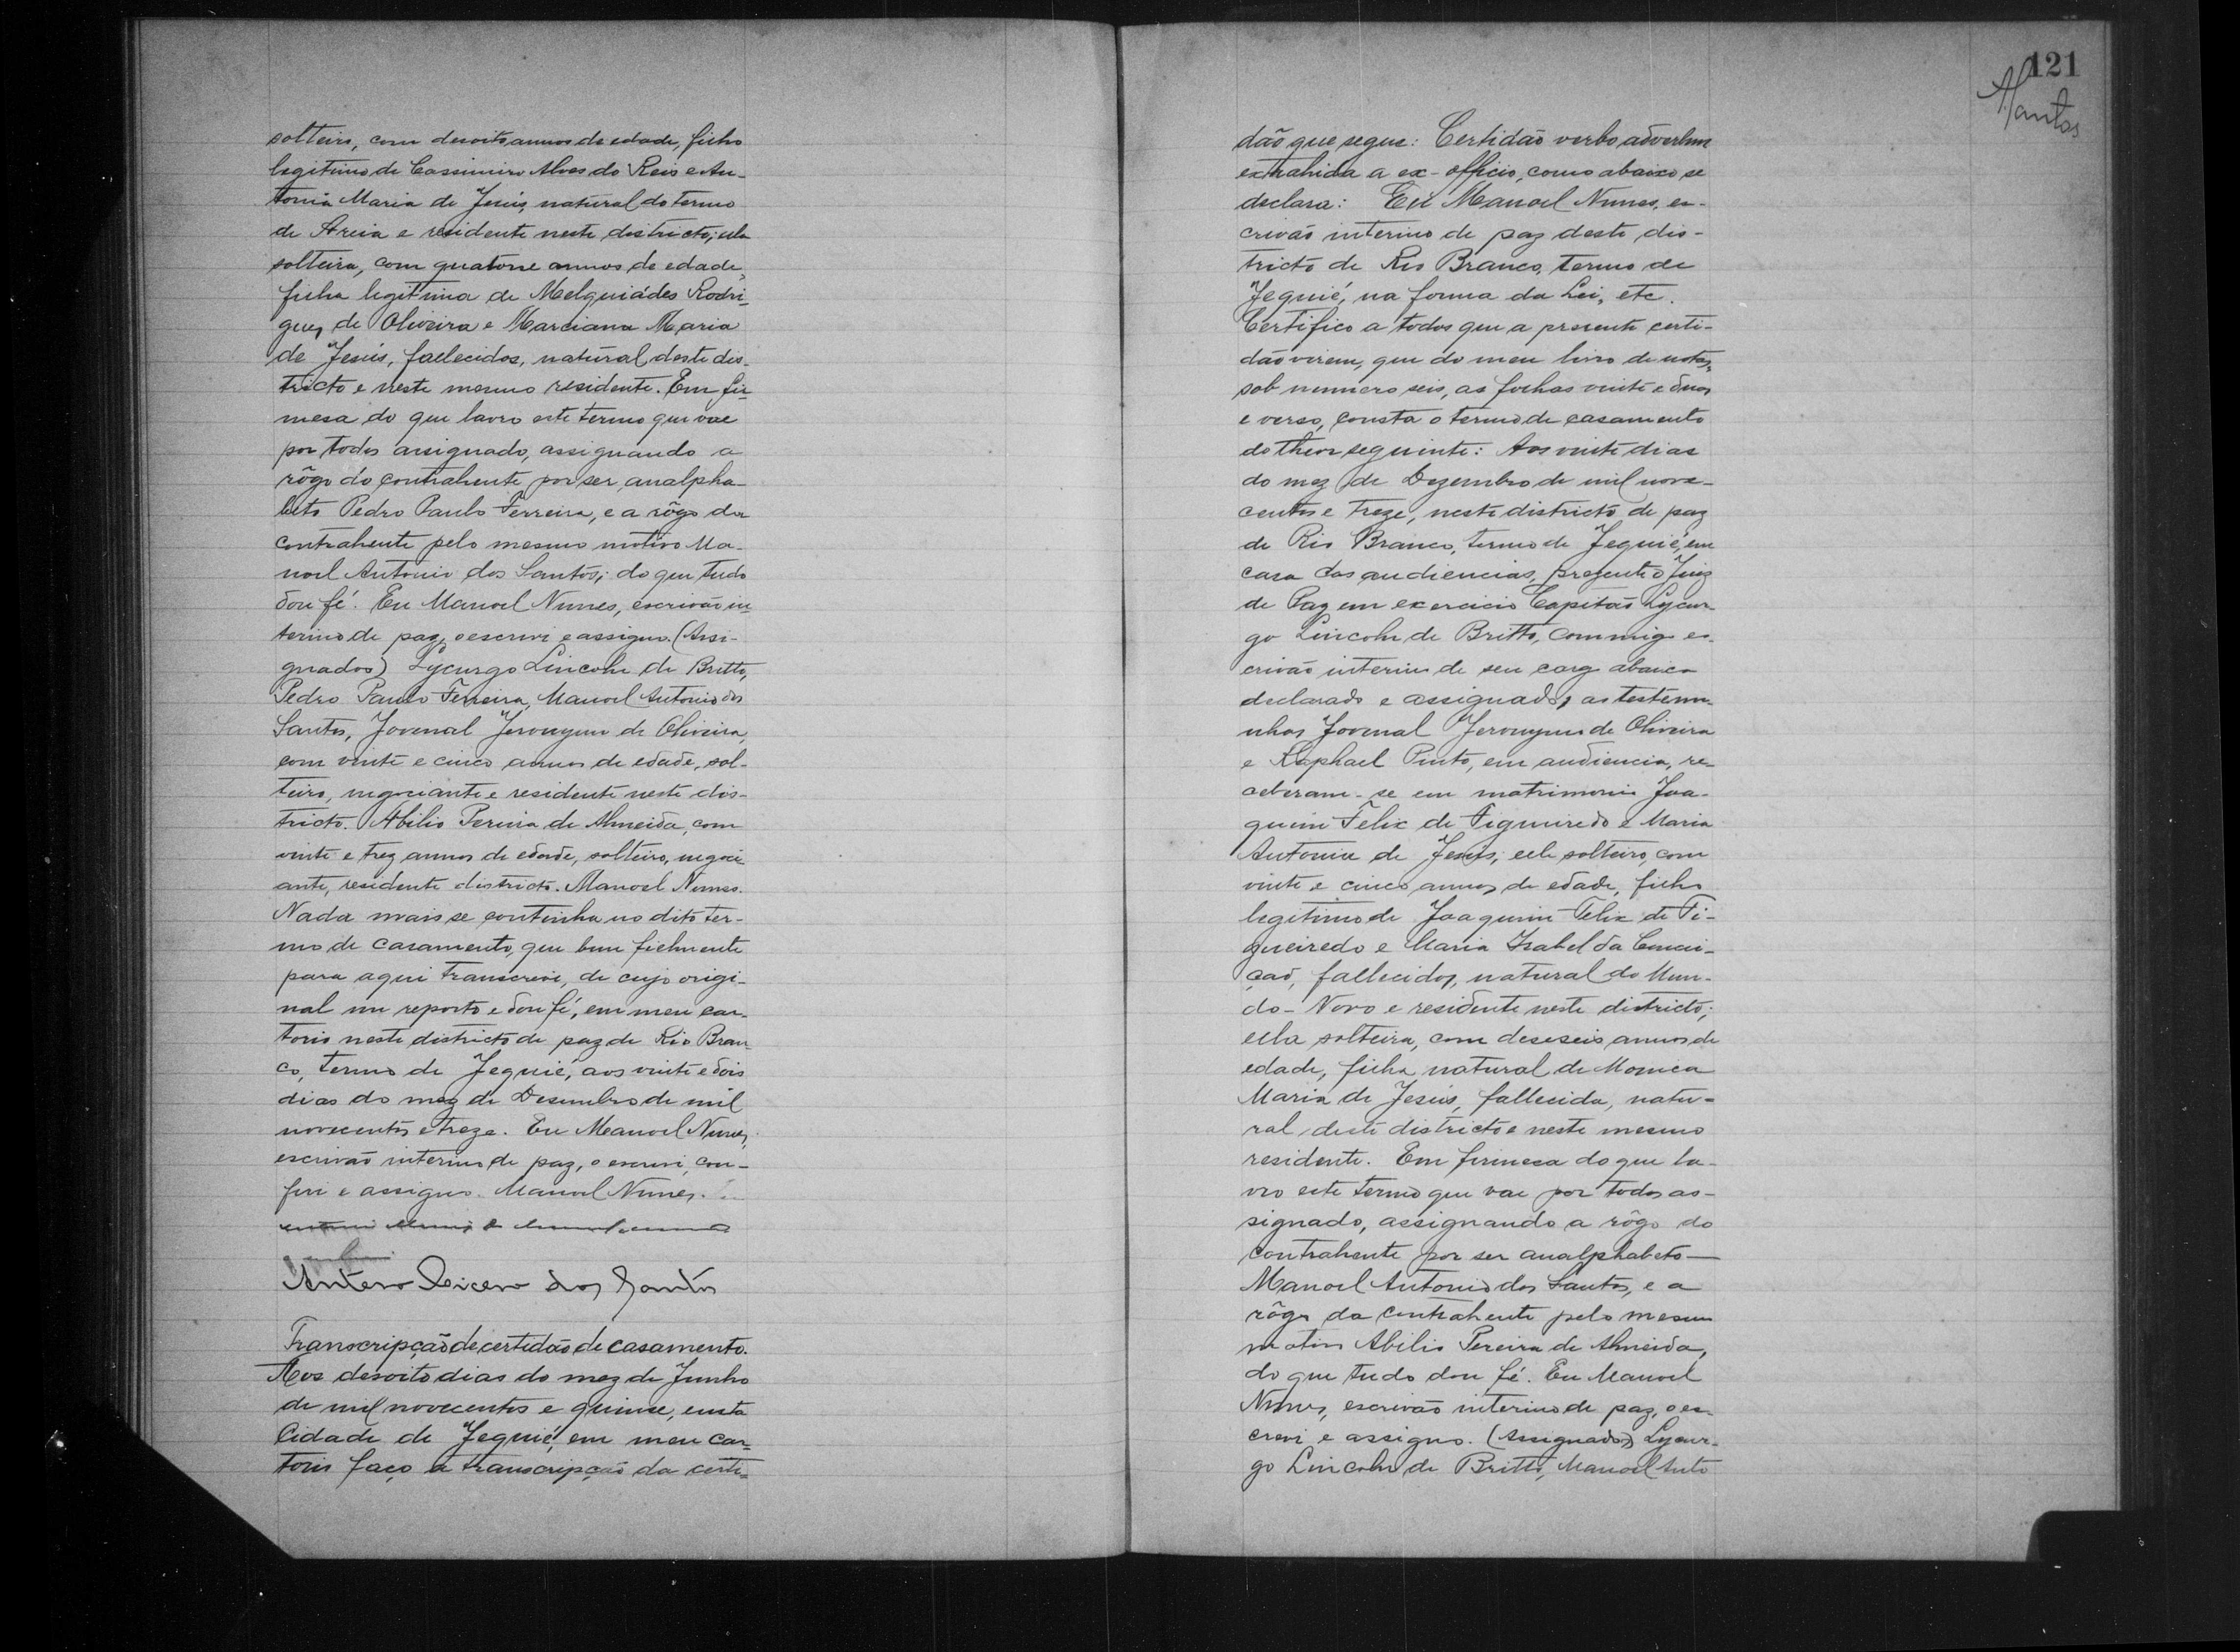 solteiro, com desoito annos de edade, filho
legitimo de Cassimiro Alves do Reis e An-
tonia Maria de Jesús, natural do termo
de Areia e residente neste districto; ella
solteira, com quatorse annos de edade,
filha legitima de Melquiádes Rodri-
gues de Oliveira e Marciana Maria
de Jesús, fallecidos, natural deste dis-
tricto e neste mesmo residente. Em fir-
mesa do que lavro este termo que vae
por todos assignado, assignando a
rôgo do contrahente por ser analpha-
beto Pedro Paulo Ferreira, e a rôgo da
contrahente pelo mesmo motivo Ma-
noel Antonio dos Santos; do que tudo
dou fé. Eu Manoel Nunes, escrivão in-
terino de paz, o escrevi e assigno. (Assi-
gnados) Lycurgo Lincoln de Britto,
Pedro Paulo Ferreira, Manoel Antonio dos
Santos, Jovenal Jeronymo de Oliveira,
com vinte e cinco annos de edade, sol-
teiro, negociante e residente neste dis-
tricto. Abilio Pereira de Almeida, com
vinte e trez annos de edade, solteiro, negoci
ante, residente districto. Manoel Nunes.
Nada mais se continha no dito ter-
mo de casamento, que bem fielmente
para aqui transcrevi, de cujo origi-
nal me reporto e dou fé, em meu car-
torio neste districto de paz de Rio Bran-
co, termo de Jequié, aos vinte e dois
dias do mez de Desembro de mil
novecentos e treze. Eu Manoel Nunes,
escrivão interino de paz, o escrevi, con-
feri e assigno. Manoel Nunes.
Antero Cicero dos Santos
Transcripção de certidão de casamento.
Aos desoito dias do mez de Junho
de mil novecentos e quinse, nesta
Cidade de Jequié, em meu car-
torio faço a transcripção da certi-
121
Santos
dão que segue: Certidão verbo adverbum
extrahida a ex-officio, como abaixo se
declara: Eu Manoel Nunes, es-
crivão interino de paz deste dis-
tricto de Rio Branco, termo de
Jequié, na forma da Lei, etc.
Certifico a todos que a presente certi-
dão virem, que do meu livro de notas,
sob numero seis, as folhas vinte e duas
e verso, consta o termo de casamento
do theor seguinte: Aos vinte dias
do mez de Dezembro de mil nove-
centos e treze, neste districto de paz
de Rio Branco, termo de Jequié, em
casa das audiencias, prezente o Juiz
de Paz em exercicio Capitão Lycur-
go Lincoln de Britto, commigo es-
crivão interino de seu cargo abaixo
declarado e assignado, as testemu-
nhas Jovenal Jeronymo de Oliveira
e Raphael Pinto, em audiencia, re-
ceberam-se em matrimonio Joa-
quim Felix de Figueiredo e Maria
Antonia de Jesús; elle solteiro, com
vinte e cinco annos de edade, filho
legitimo de Joaquim Felix de Fi-
gueiredo e Maria Isabel da Concei-
ção, fallecidos, natural do Mun-
do-Novo e residente neste districto;
ella solteira, com deseseis annos de
edade, filha natural de Monica
Maria de Jesús, fallecida, natu-
ral deste districto e neste mesmo
residente. Em firmesa do que la-
vro este termo que vae por todos as-
signado, assignando a rôgo do
contrahente por ser analphabeto
Manoel Antonio dos Santos, e a
rôgo da contrahente pelo mesmo
motivo Abilio Pereira de Almeida,
do que tudo dou fé. Eu Manoel
Nunes, escrivão interino de paz, o es-
crevi e assigno. (Assignados) Lycur-
go Lincoln de Britto, Manoel Anto